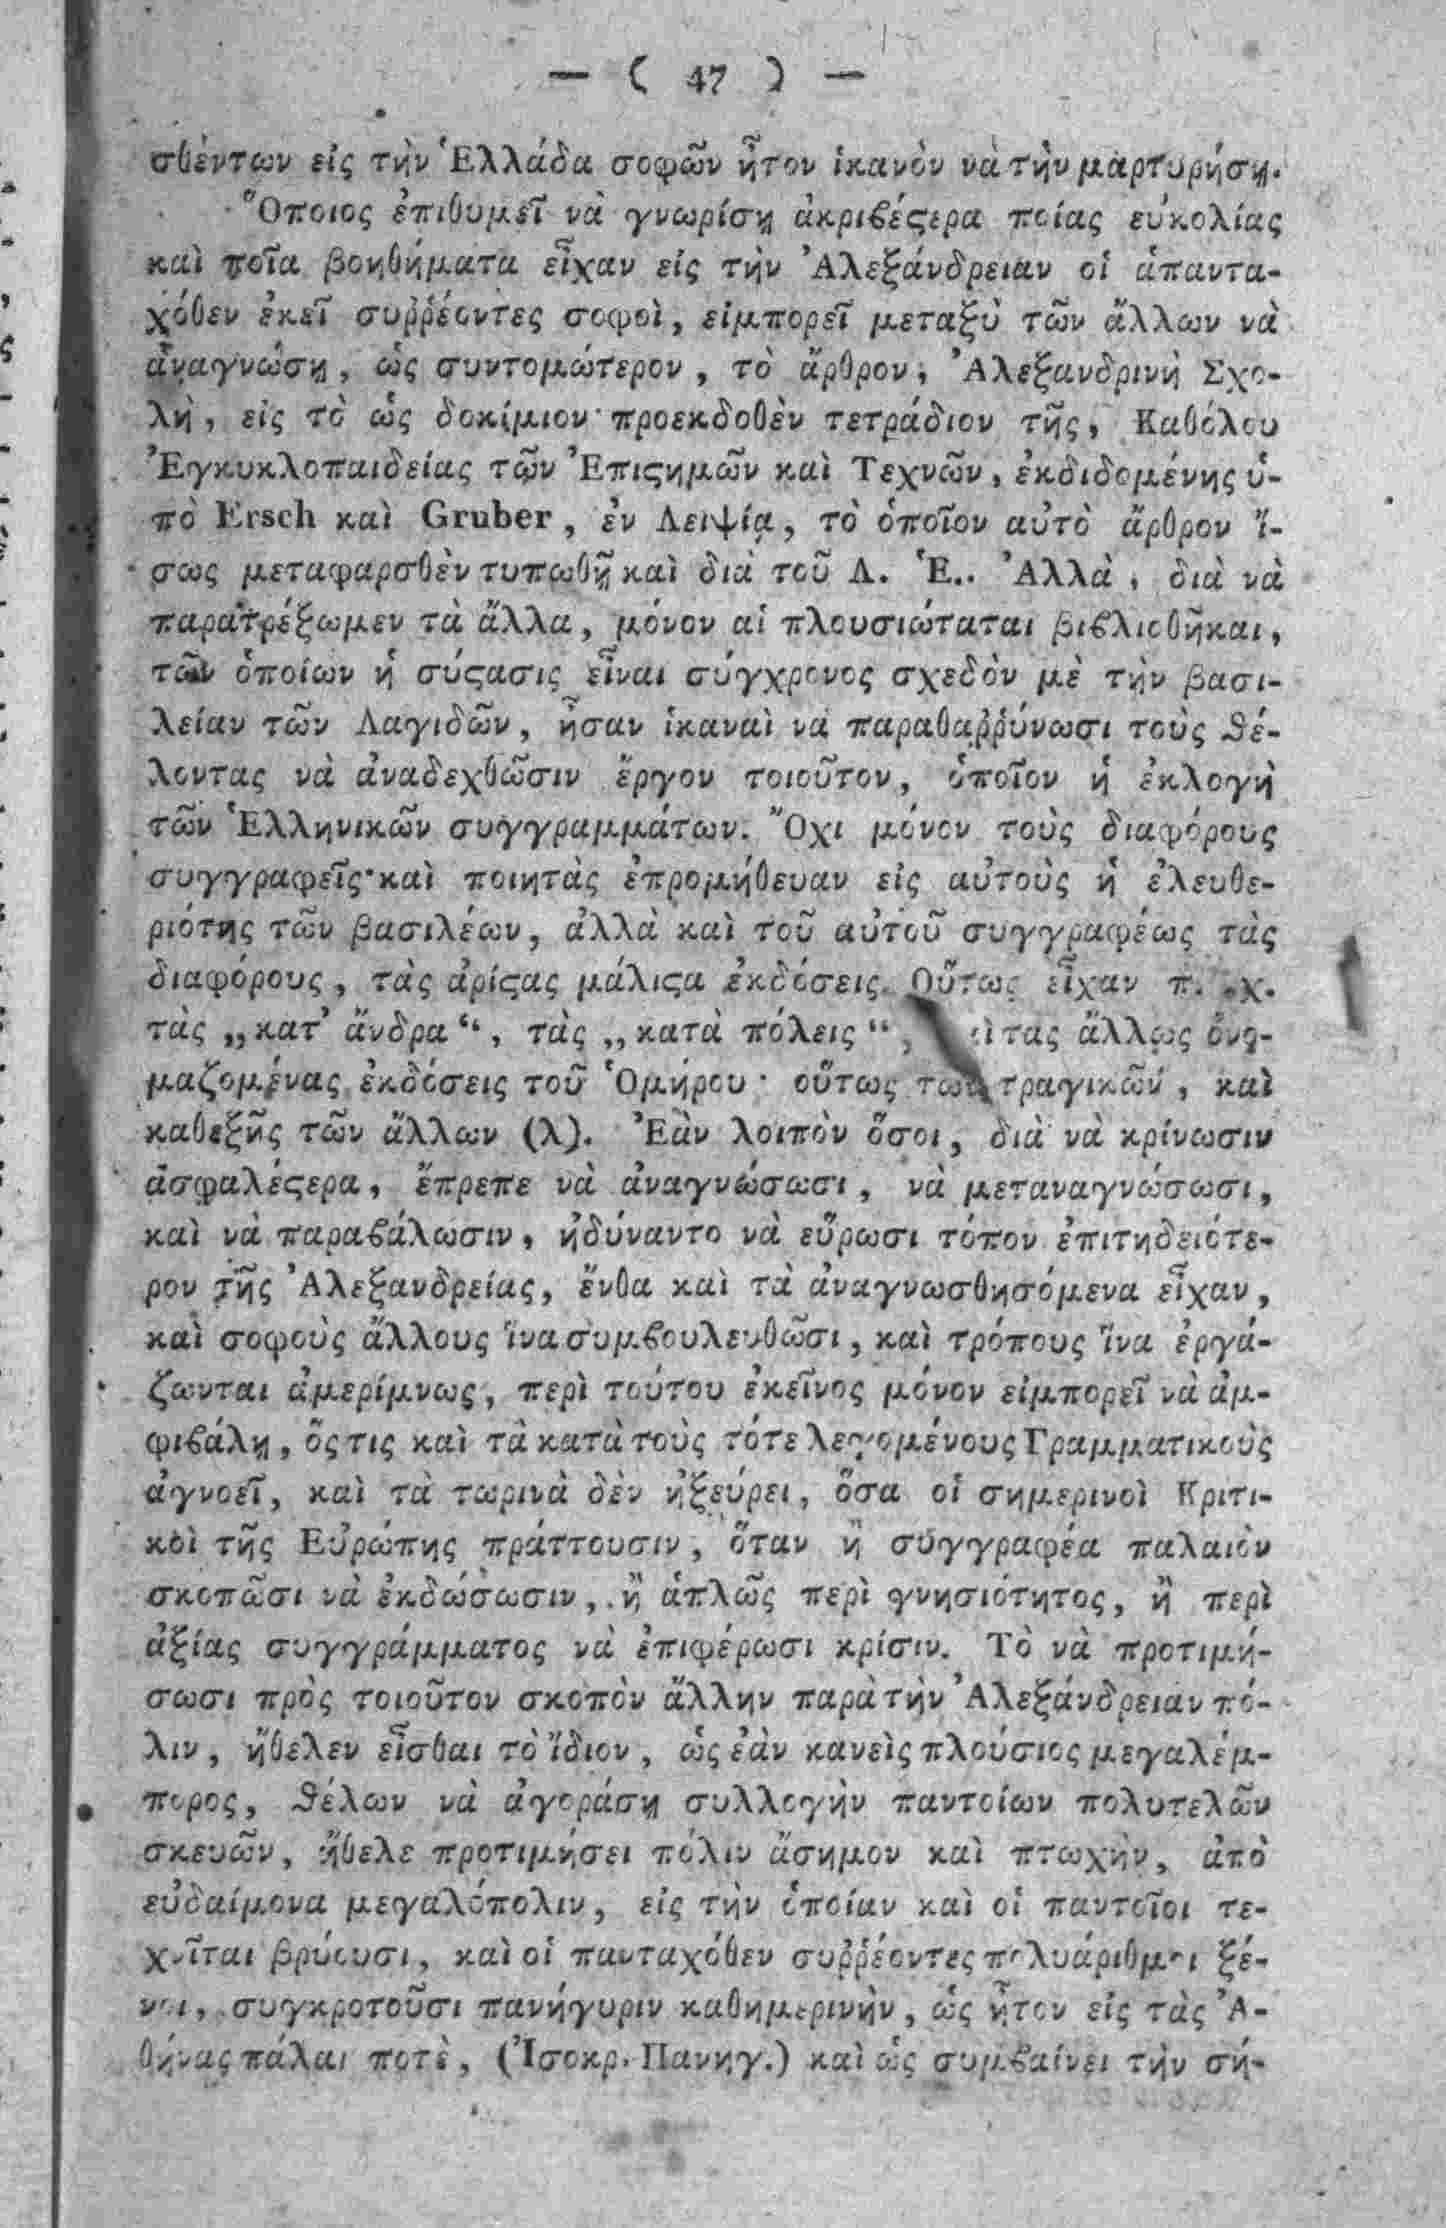 — ( 47 ) —
σθέντων εἰς τὴν Ἑλλάδα σοφῶν ἦτον ἱκανὸν νὰ τὴν μαρτυρήσῃ.
Ὅποιος ἐπιθυμεῖ νὰ γνωρίσῃ ἀκριβέϛερα ποίας εὐκολίας
καὶ ποῖα βοηθήματα εἶχαν εἰς τὴν Ἀλεξάνδρειαν οἱ ἁπαντα-
χόθεν ἐκεῖ συῤῥέοντες σοφοὶ, εἰμπορεῖ μεταξὺ τῶν ἄλλων νὰ
ἀναγνώσῃ, ὡς συντομώτερον, τὸ ἄρθρον, Ἀλεξανδρινὴ Σχο-
λὴ, εἰς τὸ ὡς δοκίμιον προεκδοθὲν τετράδιον τῆς, Καθόλου
Ἐγκυκλοπαιδείας τῶν Ἐπιϛημῶν καὶ Τεχνῶν, ἐκδιδομένης ὑ-
πὸ Ersch καὶ Gruber, ἐν Λειψίᾳ, τὸ ὁποῖον αὐτὸ ἄρθρον ἴ-
σως μεταφαρσθὲν τυπωθῇ καὶ διὰ τοῦ Λ. Ἑ.. Ἀλλὰ, διὰ νὰ
παρατρέξωμεν τὰ ἄλλα, μόνον αἱ πλουσιώταται βιβλιοθῆκαι,
τῶν ὁποίων ἡ σύϛασις εἶναι σύγχρονος σχεδὸν μὲ τὴν βασι-
λείαν τῶν Λαγιδῶν, ἦσαν ἱκαναὶ νὰ παραθαῤῥύνωσι τοὺς θέ-
λοντας νὰ ἀναδεχθῶσιν ἔργον τοιοῦτον, ὁποῖον ἡ ἐκλογὴ
τῶν Ἑλληνικῶν συγγραμμάτων. Ὄχι μόνον τοὺς διαφόρους
συγγραφεῖς καὶ ποιητὰς ἐπρομήθευαν εἰς αὐτοὺς ἡ ἐλευθε-
ριότης τῶν βασιλέων, ἀλλὰ καὶ τοῦ αὐτοῦ συγγραφέως τὰς
διαφόρους, τὰς ἀρίϛας μάλιϛα ἐκδόσεις. Οὕτως εἶχαν π. χ.
τὰς „κατ' ἄνδρα“, τὰς „κατὰ πόλεις“, τὰς ἄλλως ὀνο-
μαζομένας ἐκδόσεις τοῦ Ὁμήρου· οὕτως τῶν τραγικῶν, καὶ
καθεξῆς τῶν ἄλλων (λ). Ἐὰν λοιπὸν ὅσοι, διὰ νὰ κρίνωσιν
ἀσφαλέϛερα, ἔπρεπε νὰ ἀναγνώσωσι, νὰ μεταναγνώσωσι,
καὶ νὰ παραβάλωσιν, ἠδύναντο νὰ εὕρωσι τόπον ἐπιτηδειότε-
ρον τῆς Ἀλεξανδρείας, ἔνθα καὶ τὰ ἀναγνωσθησόμενα εἶχαν,
καὶ σοφοὺς ἄλλους ἵνα συμβουλευθῶσι, καὶ τρόπους ἵνα ἐργά-
ζωνται ἀμερίμνως, περὶ τούτου ἐκεῖνος μόνον εἰμπορεῖ νὰ ἀμ-
φιβάλῃ, ὅϛις καὶ τὰ κατὰ τοὺς τότε λεγομένους Γραμματικοὺς
ἀγνοεῖ, καὶ τὰ τωρινὰ δὲν ἠξεύρει, ὅσα οἱ σημερινοὶ Κριτι-
κοὶ τῆς Εὐρώπης πράττουσιν, ὅταν ἢ συγγραφέα παλαιὸν
σκοπῶσι νὰ ἐκδώσωσιν, ἢ ἁπλῶς περὶ γνησιότητος, ἢ περὶ
ἀξίας συγγράμματος νὰ ἐπιφέρωσι κρίσιν. Τὸ νὰ προτιμή-
σωσι πρὸς τοιοῦτον σκοπὸν ἄλλην παρὰ τὴν Ἀλεξάνδρειαν πό-
λιν, ἤθελεν εἶσθαι τὸ ἴδιον, ὡς ἐὰν κανεὶς πλούσιος μεγαλέμ-
πορος, θέλων νὰ ἀγοράσῃ συλλογὴν παντοίων πολυτελῶν
σκευῶν, ἤθελε προτιμήσει πόλιν ἄσημον καὶ πτωχὴν, ἀπὸ
εὐδαίμονα μεγαλόπολιν, εἰς τὴν ὁποίαν καὶ οἱ παντοῖοι τε-
χνῖται βρύουσι, καὶ οἱ πανταχόθεν συῤῥέοντες πολυάριθμοι ξέ-
νοι, συγκροτοῦσι πανήγυριν καθημερινὴν, ὡς ἦτον εἰς τὰς Ἀ-
θήνας πάλαι ποτὲ, (Ἰσοκρ. Πανηγ.) καὶ ὡς συμβαίνει τὴν σή-